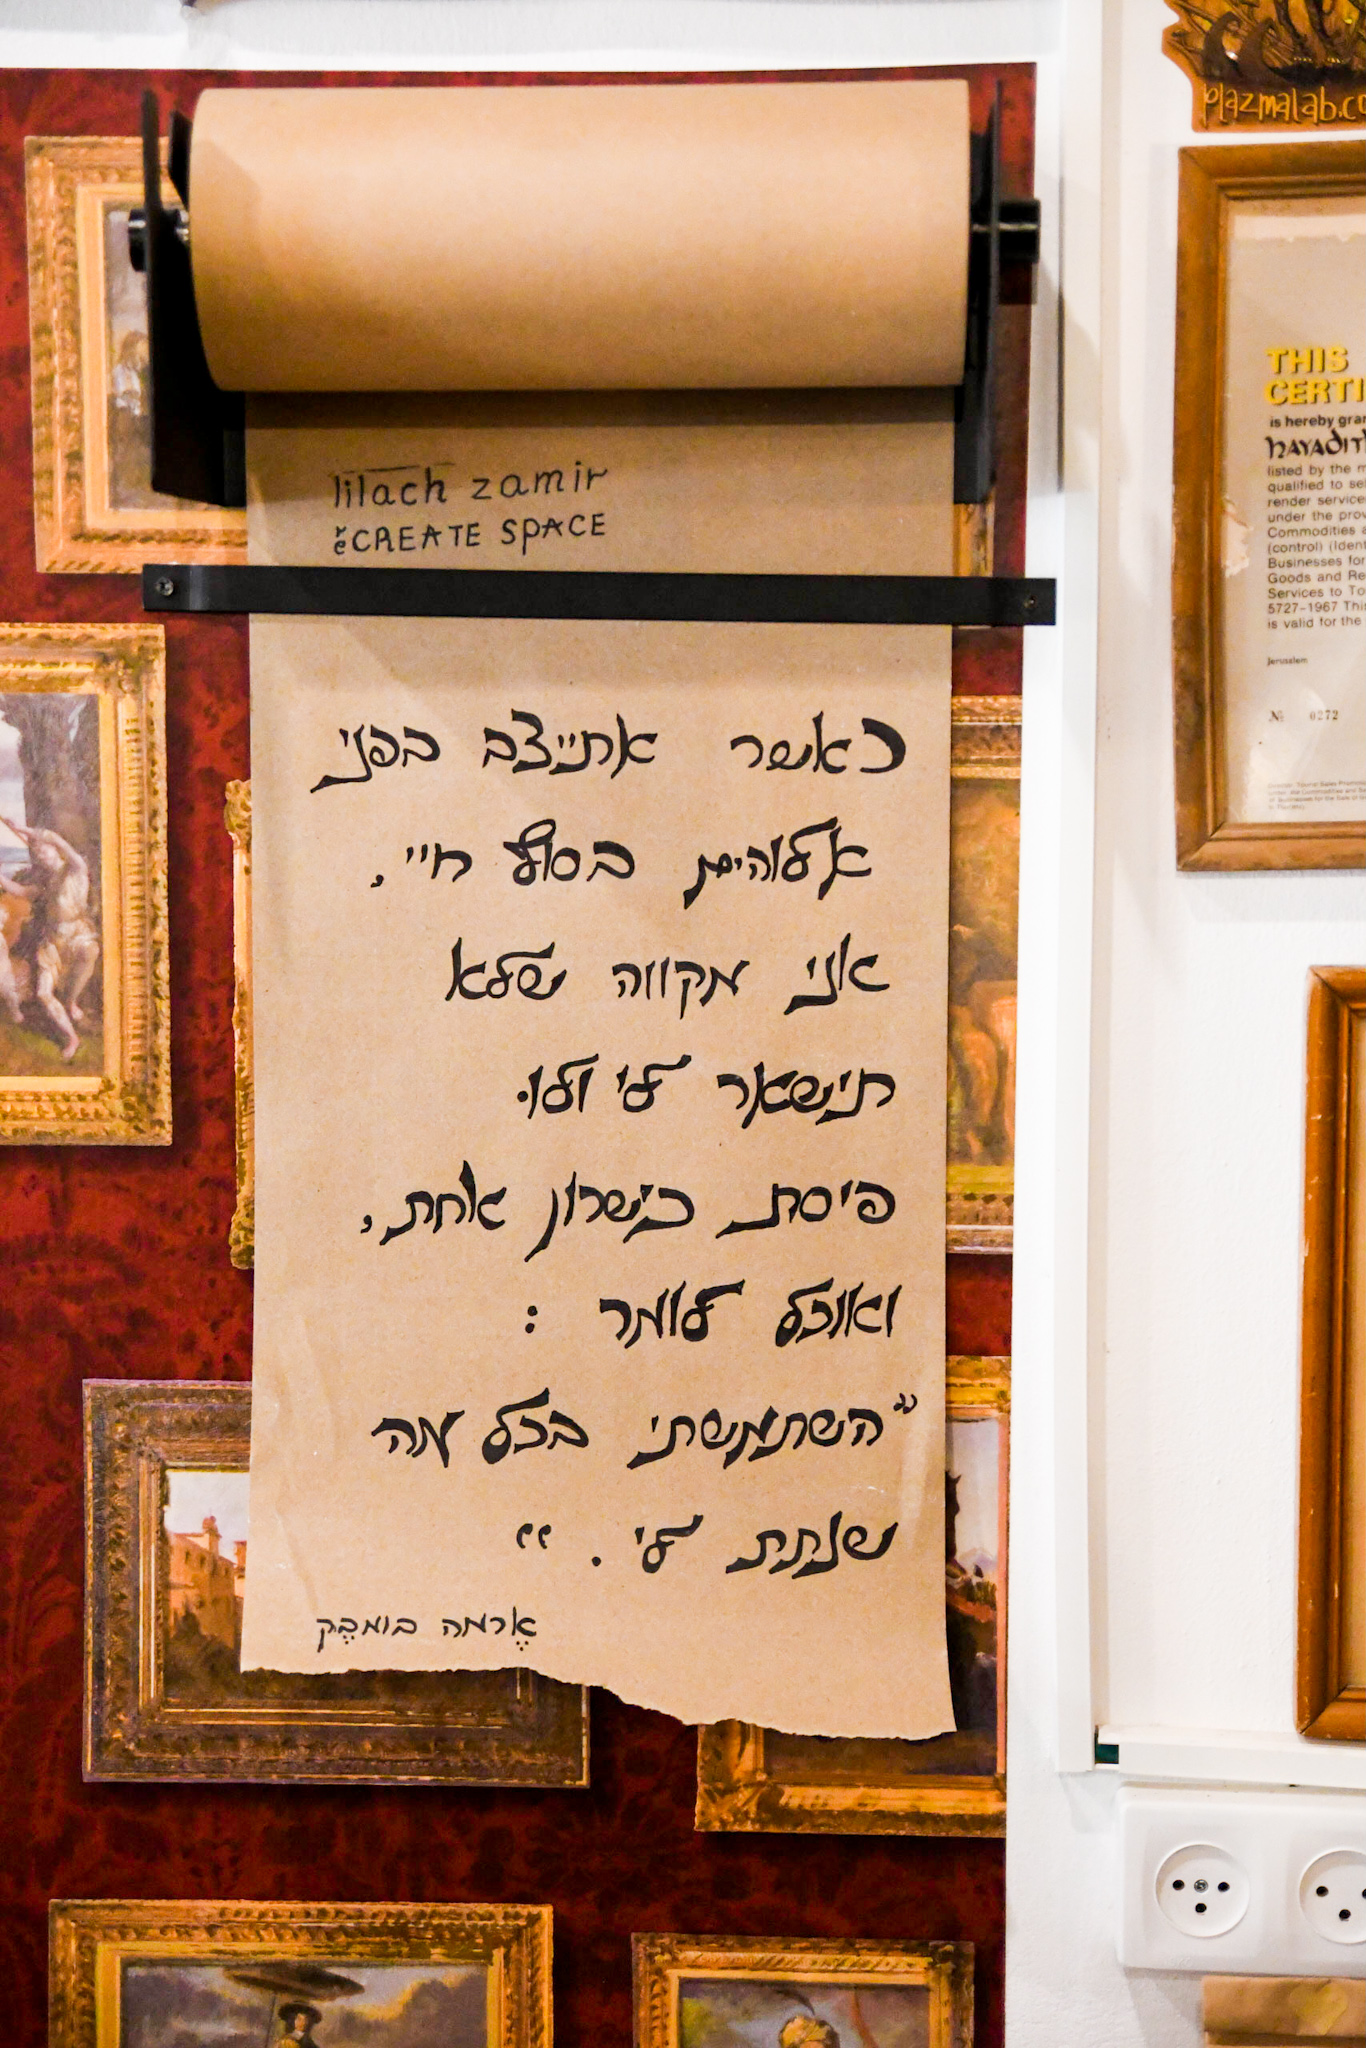 lilach zamir
CREATE SPACE
כאשר אתייצב בפני
אלוהים בסוף חיי,
אני מקווה שלא
תישאר לי ולו
פיסת כישרון אחת,
ואוכל לומר :
"השתמשתי בכל מה
שנתת לי . "
אֶרמה בומבֶק
plazmalab.co
THIS
CERTI
is hereby gran
listed by the m
qualified to sel
render services
under the prov
Commodities a
(control) (Ident
Businesses for
Goods and Re
Services to To
5727-1967 Thi
is valid for the
Jerusalem
№ 0272